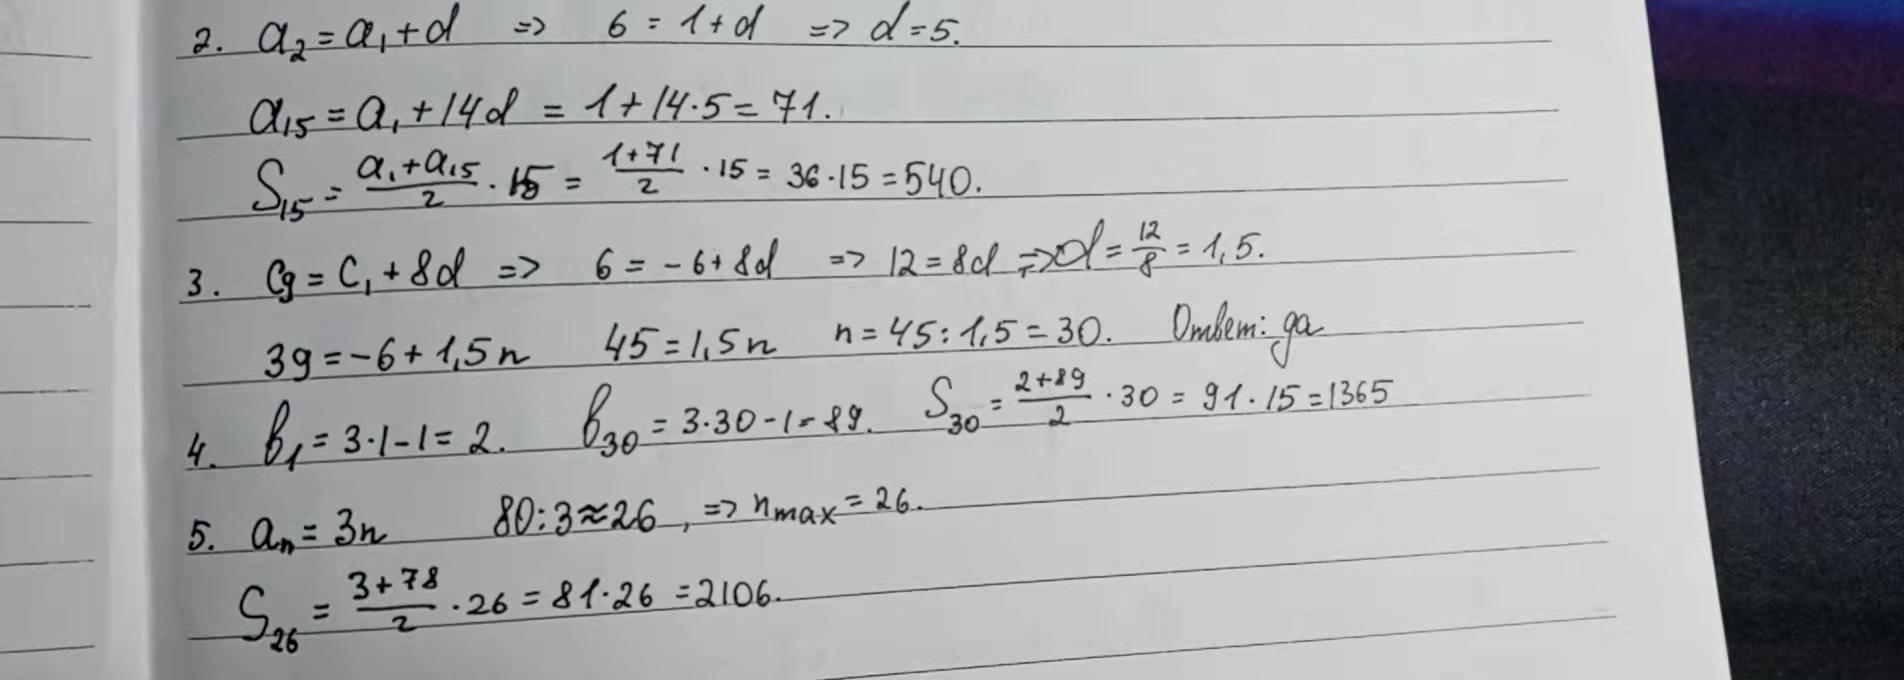 2. a₂ = a₁ + d => 6 = 1 + d => d = 5.
a₁₅ = a₁ + 14d = 1 + 14·5 = 71.
S₁₅ = (a₁ + a₁₅)/2 · 15 = (1 + 71)/2 · 15 = 36·15 = 540.
3. c₉ = c₁ + 8d => 6 = -6 + 8d => 12 = 8d => d = 12/8 = 1,5.
39 = -6 + 1,5n 45 = 1,5n n = 45 : 1,5 = 30. Ответ: да
4. b₁ = 3·1 - 1 = 2. b₃₀ = 3·30 - 1 = 89. S₃₀ = (2 + 89)/2 · 30 = 91·15 = 1365
5. aₙ = 3n 80 : 3 ≈ 26, => n max = 26.
S₂₆ = (3 + 78)/2 · 26 = 81·26 = 2106.